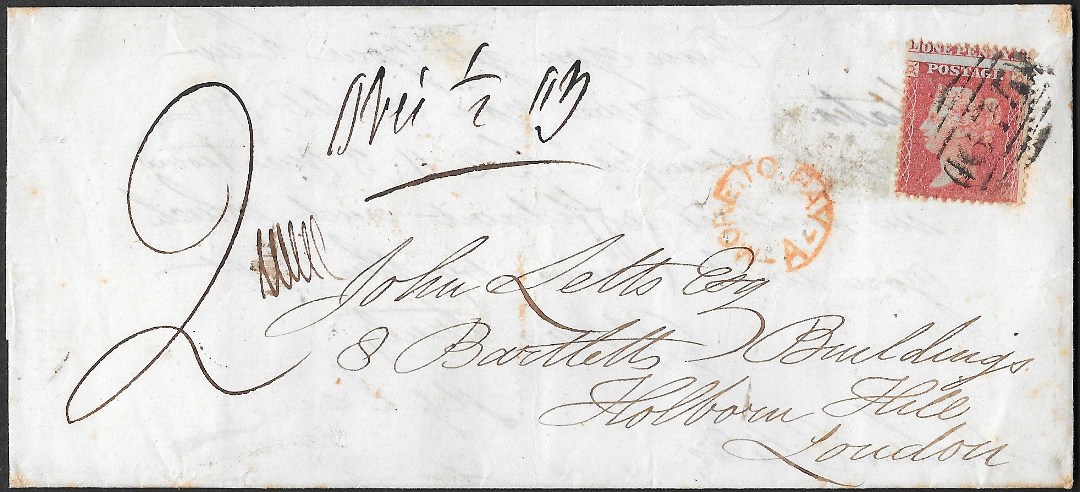 ONE PENNY
POSTAGE
½
MORE TO PAY
2
John Letts Esq
8 Bartletts Buildings
Holborn Hill
London